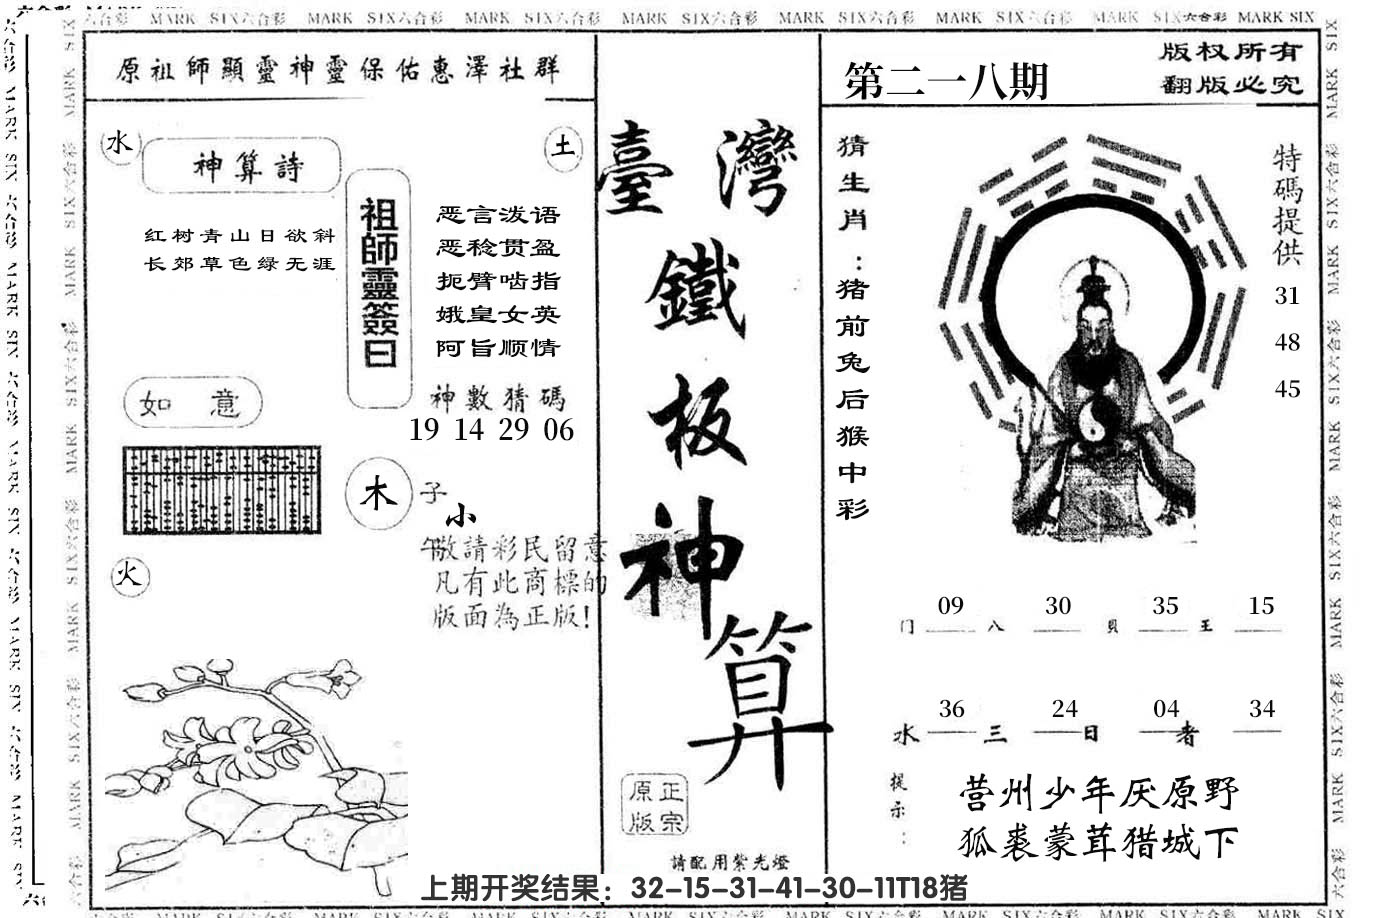 原祖師顯靈神靈保佑惠澤社群
水
神算詩
土
红树青山日欲斜
长郊草色绿无涯
祖師靈簽曰
恶言泼语
恶稔贯盈
扼臂啮指
娥皇女英
阿旨顺情
神數猜碼
19 14 29 06
如意
木
子
小
午
敬請彩民留意
凡有此商標的
版面為正版!
火
臺灣
鐵
板
神
算
正宗
原版
請配用紫光燈
第二一八期
版权所有
翻版必究
猜生肖:猪前兔后猴中彩
特碼提供
31
48
45
09 30 35 15
门 八 貝 王
36 24 04 34
水 三 日 者
提示:
营州少年厌原野
狐裘蒙茸猎城下
上期开奖结果：32-15-31-41-30-11T18猪
MARK SIX六合彩